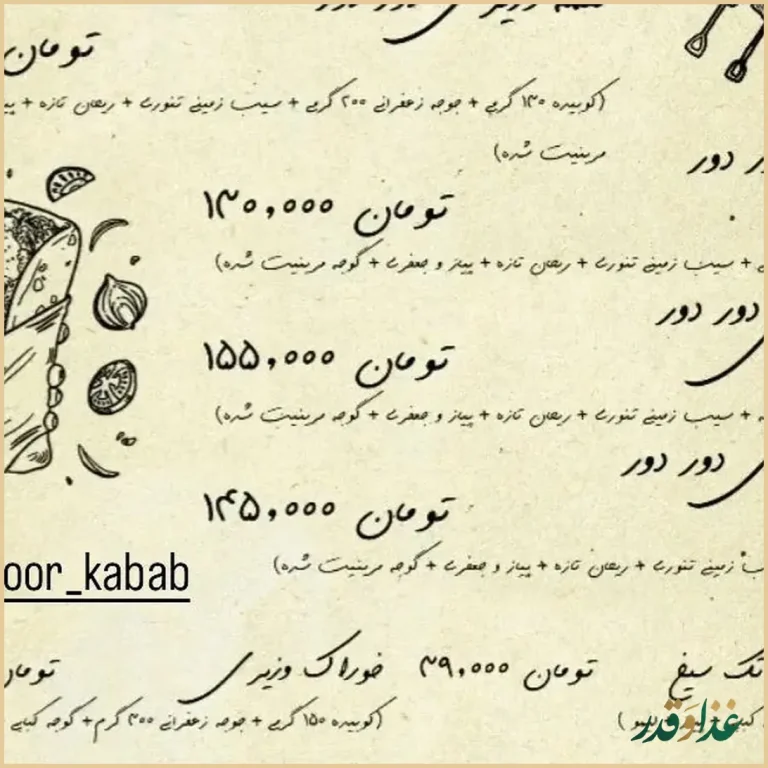 تومان
(کوبیده ۱۳۰ گرمی + جوجه زعفرانی ۲۰۰ گرمی + سیب زمینی تنوری + ریحان تازه +
مرینیت شده)
دور
تومان ۱۳۰,۰۰۰
+ سیب زمینی تنوری + ریحان تازه + پیاز و جعفری + گوجه مرینیت شده)
دور دور
تومان ۱۵۵,۰۰۰
+ سیب زمینی تنوری + ریحان تازه + پیاز و جعفری + گوجه مرینیت شده)
دور دور
تومان ۱۴۵,۰۰۰
زمینی تنوری + ریحان تازه + پیاز و جعفری + گوجه مرینیت شده)
oor_kabab
تک سیخ تومان ۳۹,۰۰۰
خوراک وزیری
(کوبیده ۱۵۰ گرمی + جوجه زعفرانی ۳۰۰ گرم + گوجه کبابی
غذاوقدر